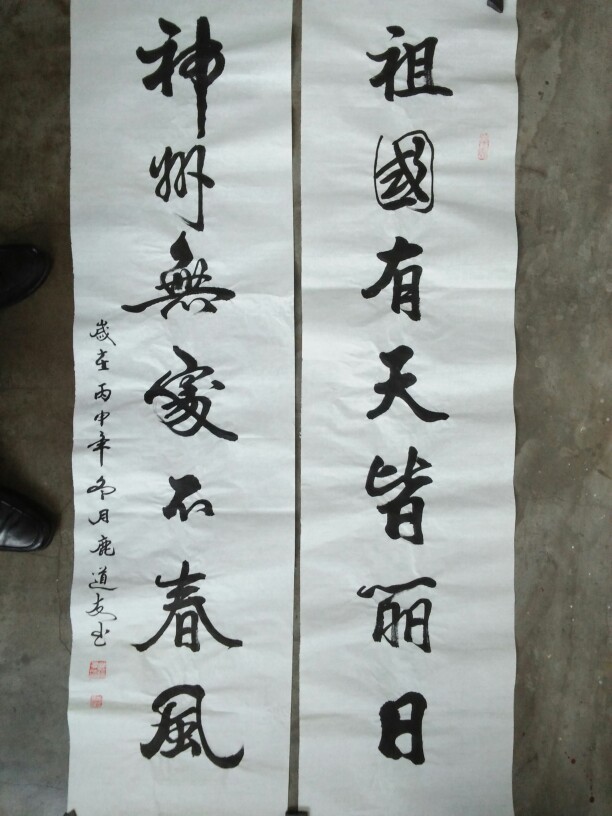 祖國有天皆丽日
神州無處不春風
歲在丙申年冬月鹿道书